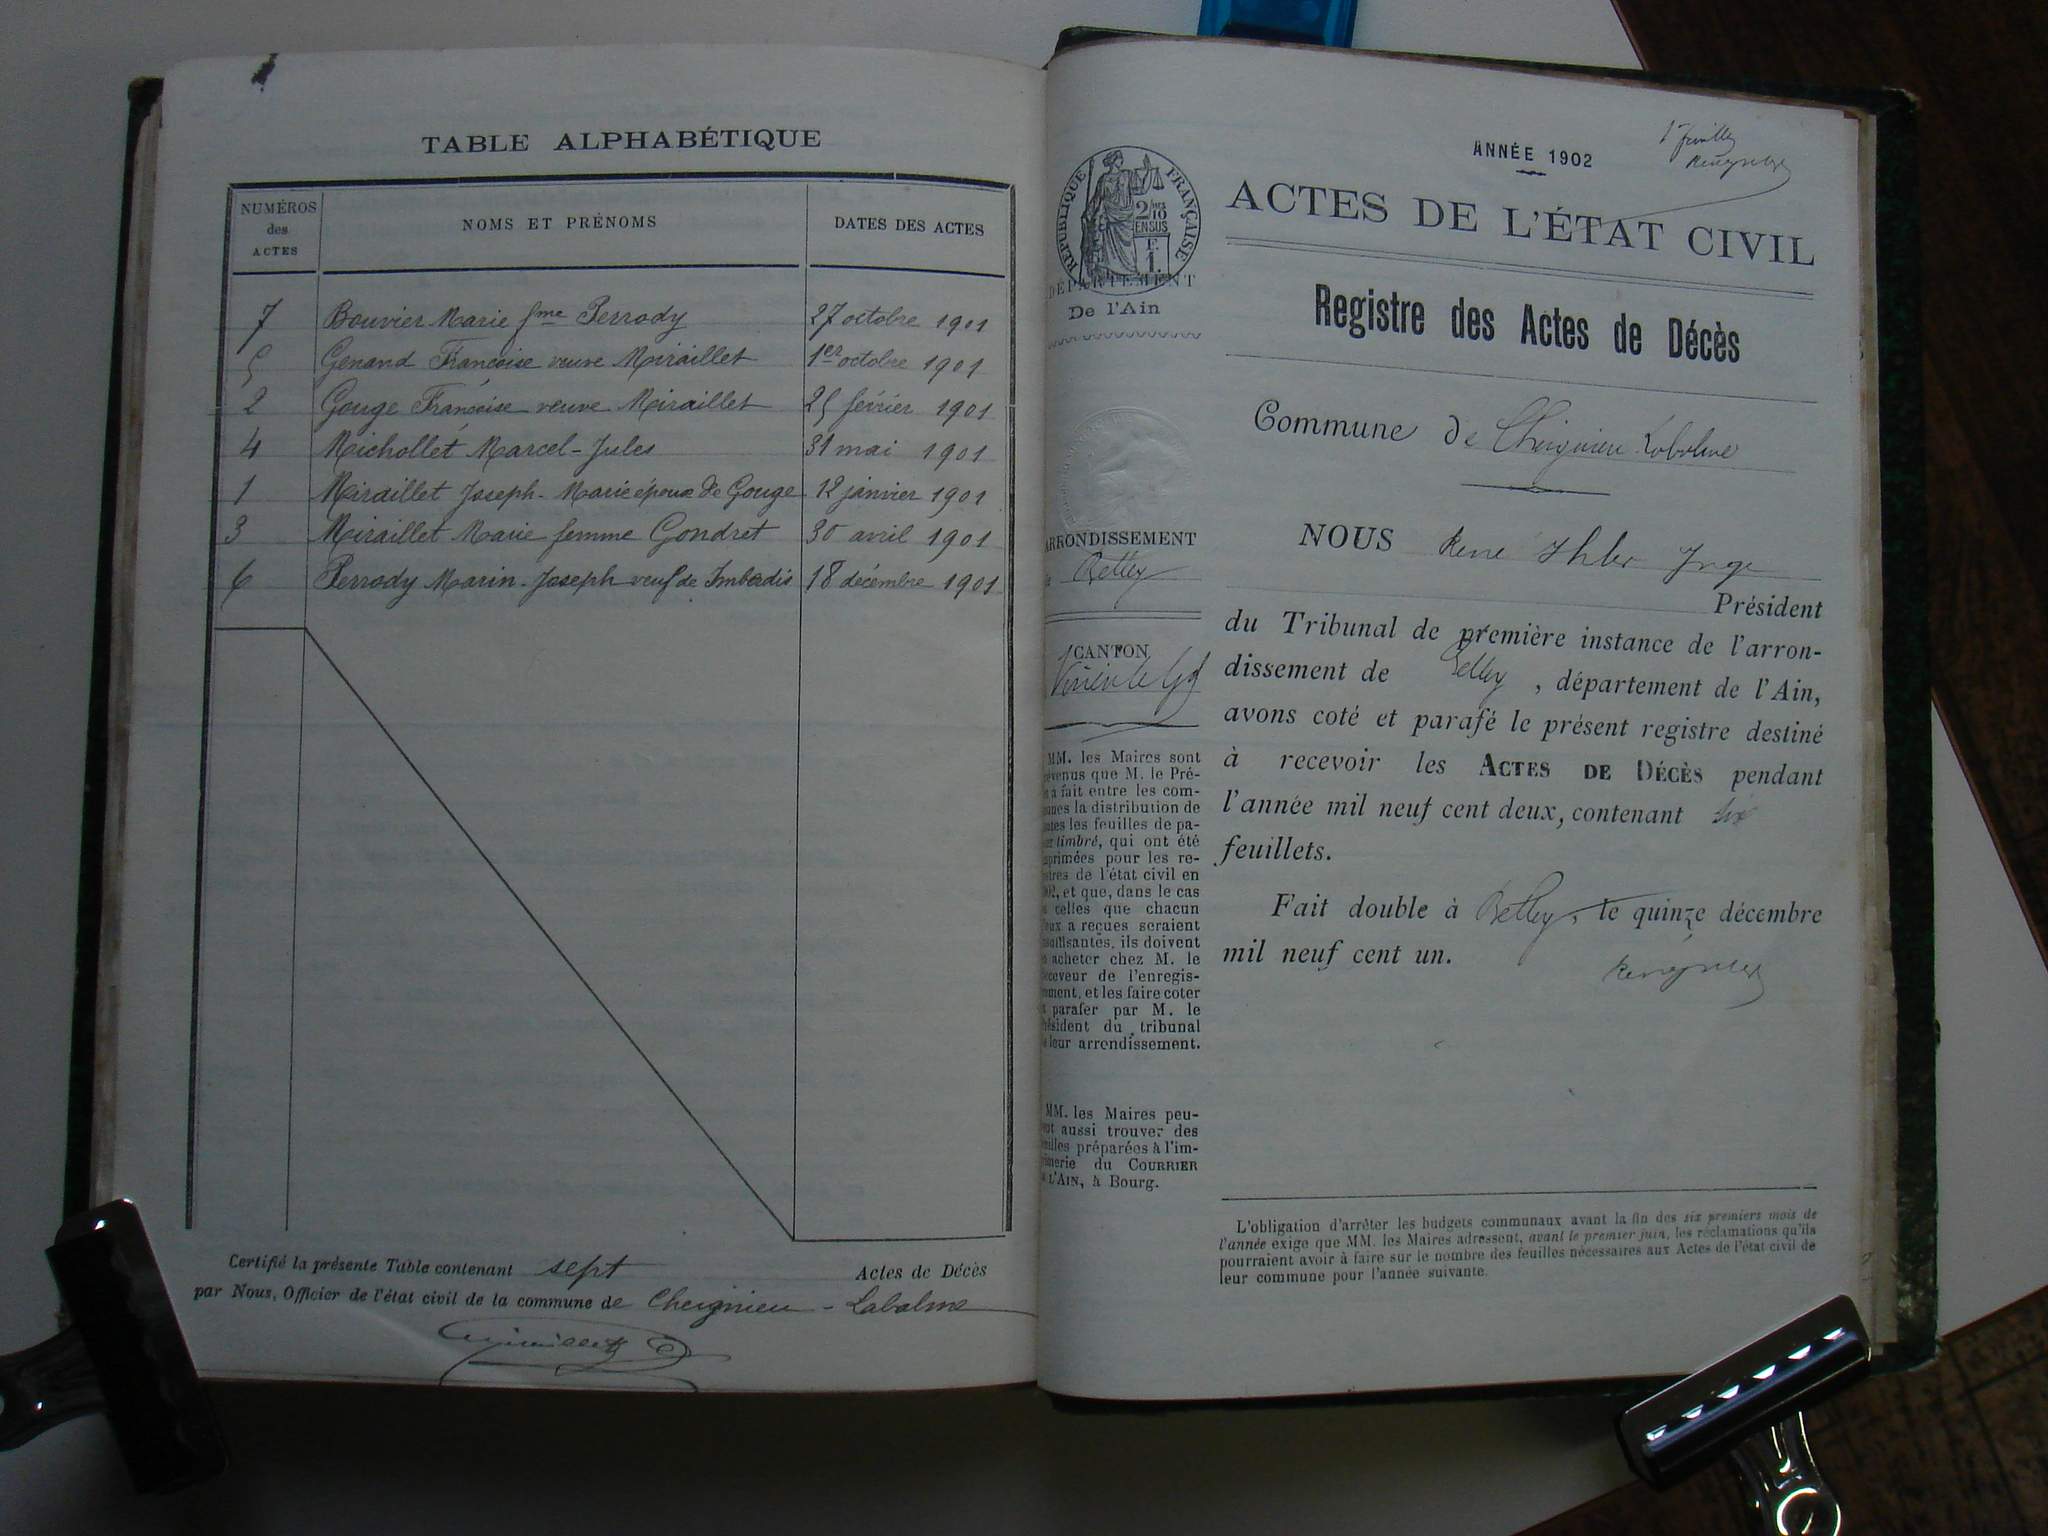 TABLE ALPHABÉTIQUE
NUMÉROS des ACTES NOMS ET PRÉNOMS DATES DES ACTES
7 Bouvier Marie fme Perrody 27 octobre 1901
5 Genand Francoise veuve Miraillet 1er octobre 1901
2 Gouge Francoise veuve Miraillet 25 février 1901
4 Michollet Marcel-Jules 31 mai 1901
1 Miraillet Joseph-Marie époux de Gouge 12 janvier 1901
3 Miraillet Marie femme Gondret 30 avril 1901
6 Perrody Marin-Joseph veuf de Imberdis 18 décembre 1901
Certifié la présente Table contenant sept Actes de Décès
par Nous, Officier de l'état civil de la commune de Cheignieu-Labalme
RÉPUBLIQUE FRANÇAISE
2/10 EN SUS
F. 1.
DÉPARTEMENT
De l'Ain
ARRONDISSEMENT
Belley
CANTON
Virieu le Gd
MM. les Maires sont
que M. le Pré-
a fait entre les com-
la distribution de
les feuilles de pa-
timbré, qui ont été
pour les re-
de l'état civil en
et que, dans le cas
celles que chacun
a reçues seraient
ils doivent
acheter chez M. le
de l'enregis-
et les faire coter
parafer par M. le
du tribunal
leur arrondissement.
MM. les Maires peu-
aussi trouver des
préparées à l'im-
du COURRIER
L'AIN, à Bourg.
ANNÉE 1902
ACTES DE L'ÉTAT CIVIL
Registre des Actes de Décès
Commune de Cheignieu Labalme
NOUS René
Président
du Tribunal de première instance de l'arron-
dissement de Belley, département de l'Ain,
avons coté et parafé le présent registre destiné
à recevoir les ACTES DE DÉCÈS pendant
l'année mil neuf cent deux, contenant six
feuillets.
Fait double à Belley, le quinze décembre
mil neuf cent un.
L'obligation d'arrêter les budgets communaux avant la fin des six premiers mois de
l'année exige que MM. les Maires adressent, avant le premier juin, les réclamations qu'ils
pourraient avoir à faire sur le nombre des feuilles nécessaires aux Actes de l'état civil de
leur commune pour l'année suivante.